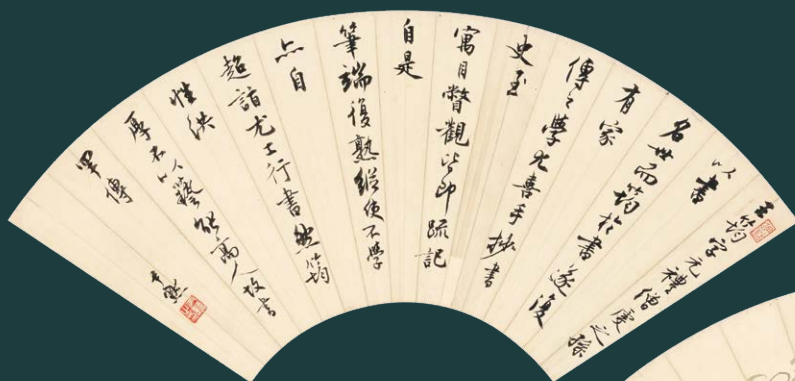 王筠字元禮僧虔之孫
以書
名世而筠於書遂復
有家
傳之學尤喜手抄書
史至
寓目瞥觀皆即疏記
自是
筆端復熟縱使不學
亦自
超詣尤工行書然筠
性洪
厚不以藝能高人故書
罕傳